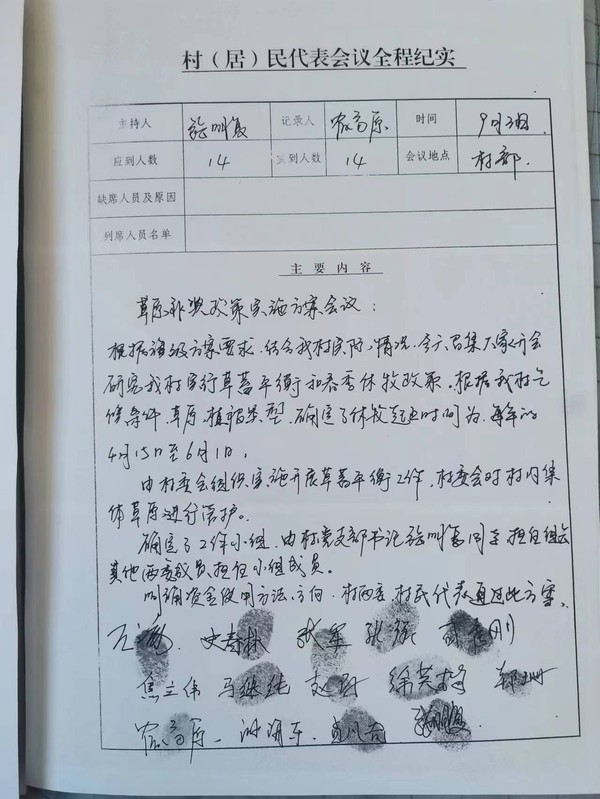 村（居）民代表会议全程纪实
主持人 记录人 农高原 时间 9月3日
应到人数 14 实到人数 14 会议地点 村部
缺席人员及原因
列席人员名单
主要内容
草原补奖政策实施方案会议：
根据 方案要求，结合我村实际情况，今天召集大家开会
研究我村实行草畜平衡和春季休牧政策。根据我村气
候条件、草原、植被类型，确定了休牧起止时间为，每年的
4月15日至6月1日。
由村委会组织实施开展草畜平衡工作，村委会对村内集
体草原进行管护。
确定了工作小组，由村党支部书记 同志担任组长
其他两委成员担任小组成员。
明确资金使用方法、方向，村两委、村民代表通过此方案。
史春林 张军 刚
焦立伟 马继纯
农高原